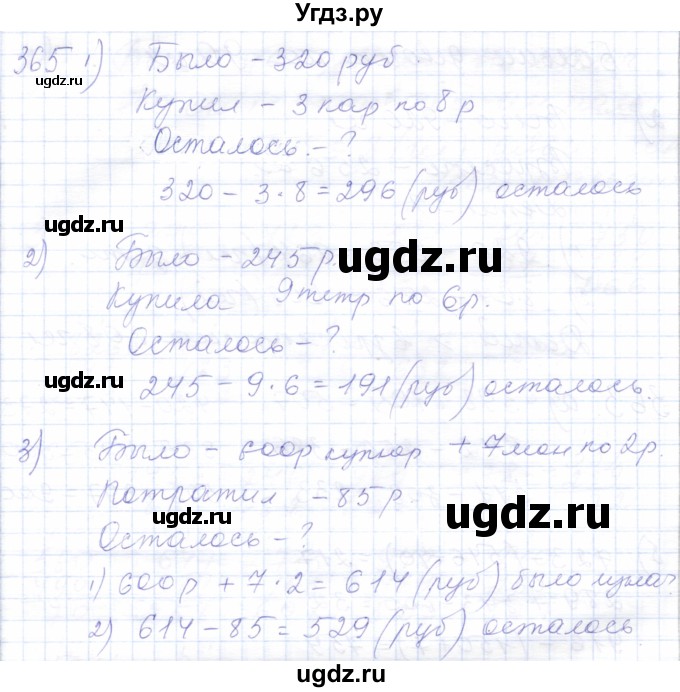 Угдз.ру
365 1) Было – 320 руб
ugdz.ru
Купил – 3 кар по 8 р
Осталось – ?
320 – 3 · 8 = 296 (руб) осталось
ugdz.ru
2) Было – 245 р.
ugdz.ru
Купила 9 тетр по 6 р.
Осталось – ?
ugdz.ru
245 – 9 · 6 = 191 (руб) осталось.
3) Было – 600 р купюр + 7 мон по 2 р.
Потратил – 85 р.
ugdz.ru
ugdz.ru
Осталось – ?
1) 600 р + 7 · 2 = 614 (руб) было
2) 614 – 85 = 529 (руб) осталось
ugdz.ru